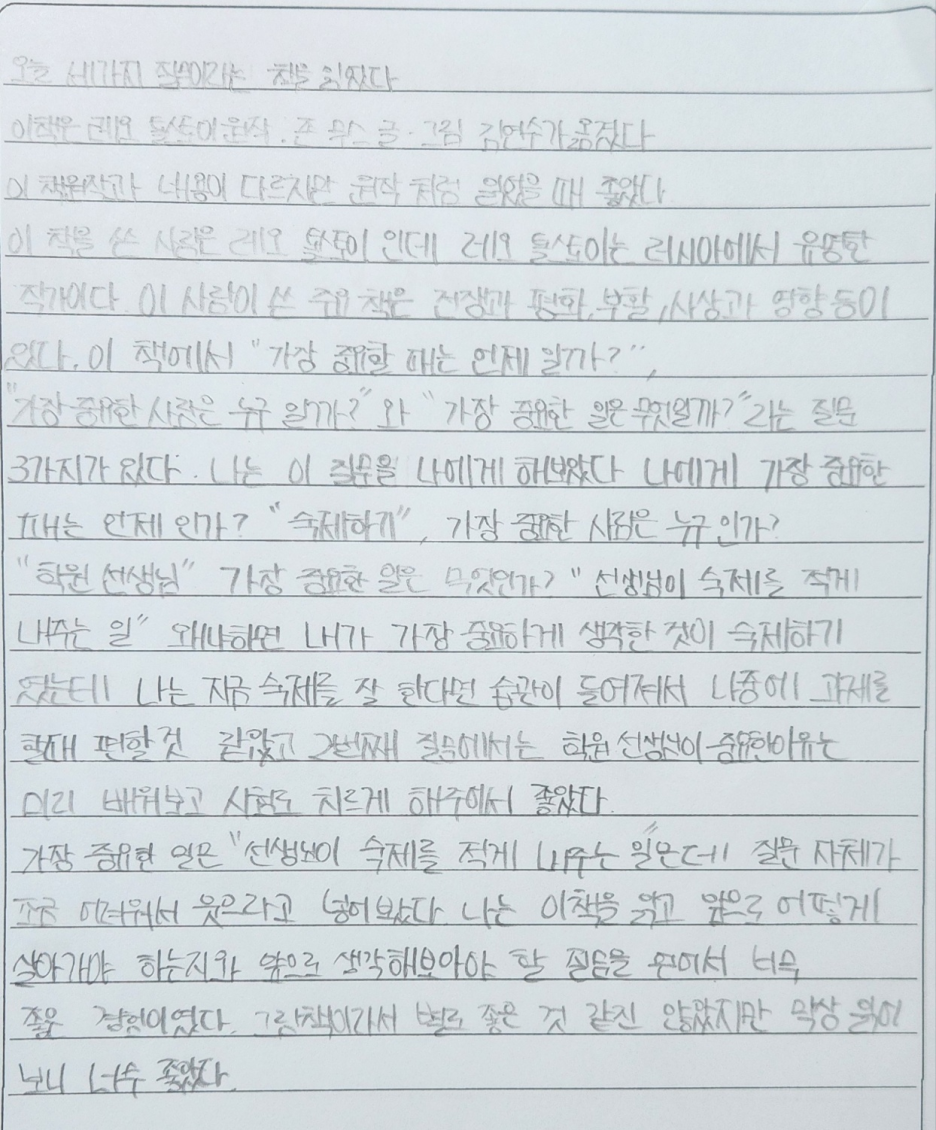 오늘 세가지 질문이라는 책을 읽었다
이책은 레오 톨스토이원작. 존 무스 글·그림 김연수가 옮겼다
이 책원작과 내용이 다르지만 원작 처럼 읽었을 때 좋았다.
이 책을 쓴 사람은 레오 톨스토이 인데 레오 톨스토이는 러시아에서 유명한
작가이다. 이 사람이 쓴 주요 책은 전쟁과 평화, 부활, 사상과 영향 등이
있다. 이 책에서 "가장 중요할 때는 언제 일까?",
"가장 중요한 사람은 누구 일까?"와 "가장 중요한 일은 무엇일까?"라는 질문
3가지가 있다. 나는 이 질문을 나에게 해보았다 나에게 가장 중요한
때는 언제 인가? "숙제하기", 가장 중요한 사람은 누구 인가?
"학원 선생님" 가장 중요한 일은 무엇인가? "선생님이 숙제를 적게
내주는 일" 왜냐하면 내가 가장 중요하게 생각한 것이 숙제하기
였는데 나는 지금 숙제를 잘 한다면 습관이 들어져서 나중에 과제를
할때 편할것 같았고 2번째 질문에서는 학원 선생님이 중요한이유는
미리 배워보고 시험도 치르게 해주어서 좋았다.
가장 중요한 일은 "선생님이 숙제를 적게 내주는 일"은데 질문 자체가
조금 어려워서 웃으라고 넣어 봤다. 나는 이책을 읽고 앞으로 어떻게
살아가야 하는지와 앞으로 생각해보아야 할 질문을 얻어서 너무
좋은 경험이였다. 그림책이라서 별로 좋은 것 같진 않았지만 막상 읽어
보니 너무 좋았다.